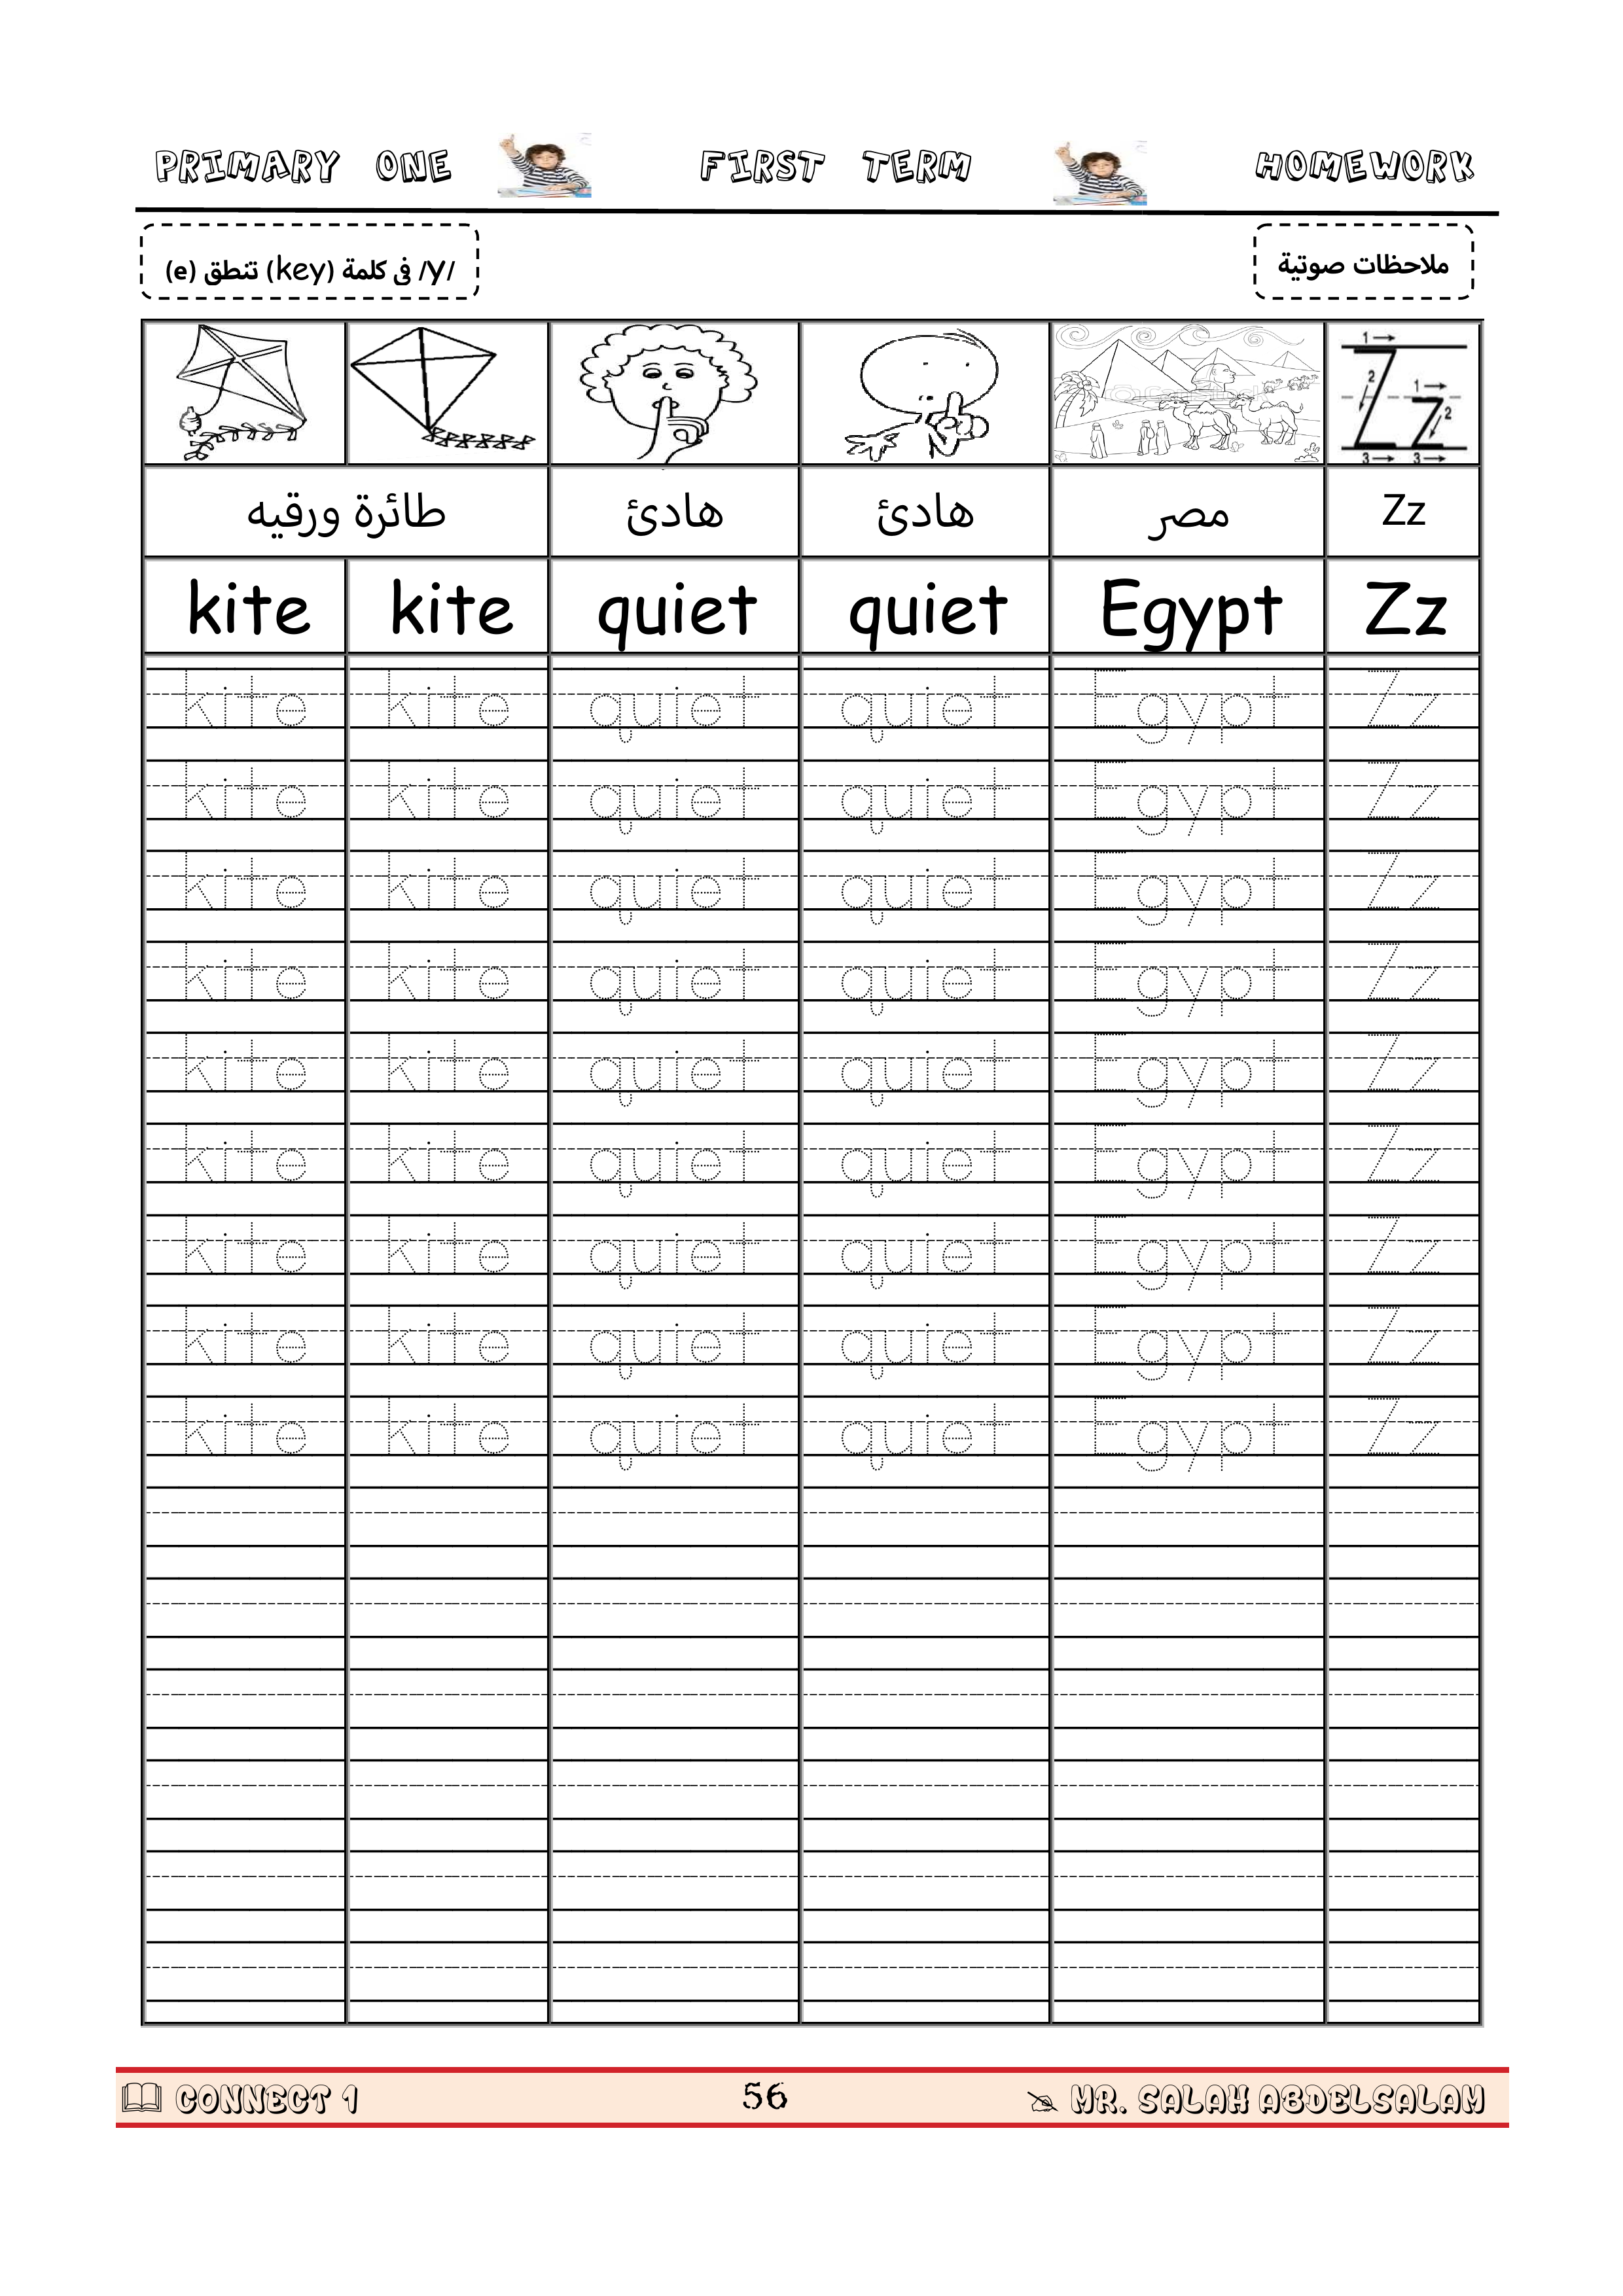 PRIMARY ONE FIRST TERM HOMEWORK
/y/ فى كلمة (key) تنطق (e)
ملاحظات صوتية
1 2 3 1 2 3
طائرة ورقيه هادئ هادئ مصر Zz
kite kite quiet quiet Egypt Zz
kite kite quiet quiet Egypt Zz
kite kite quiet quiet Egypt Zz
kite kite quiet quiet Egypt Zz
kite kite quiet quiet Egypt Zz
kite kite quiet quiet Egypt Zz
kite kite quiet quiet Egypt Zz
kite kite quiet quiet Egypt Zz
kite kite quiet quiet Egypt Zz
kite kite quiet quiet Egypt Zz
CONNECT 1 56 MR. SALAH ABDELSALAM